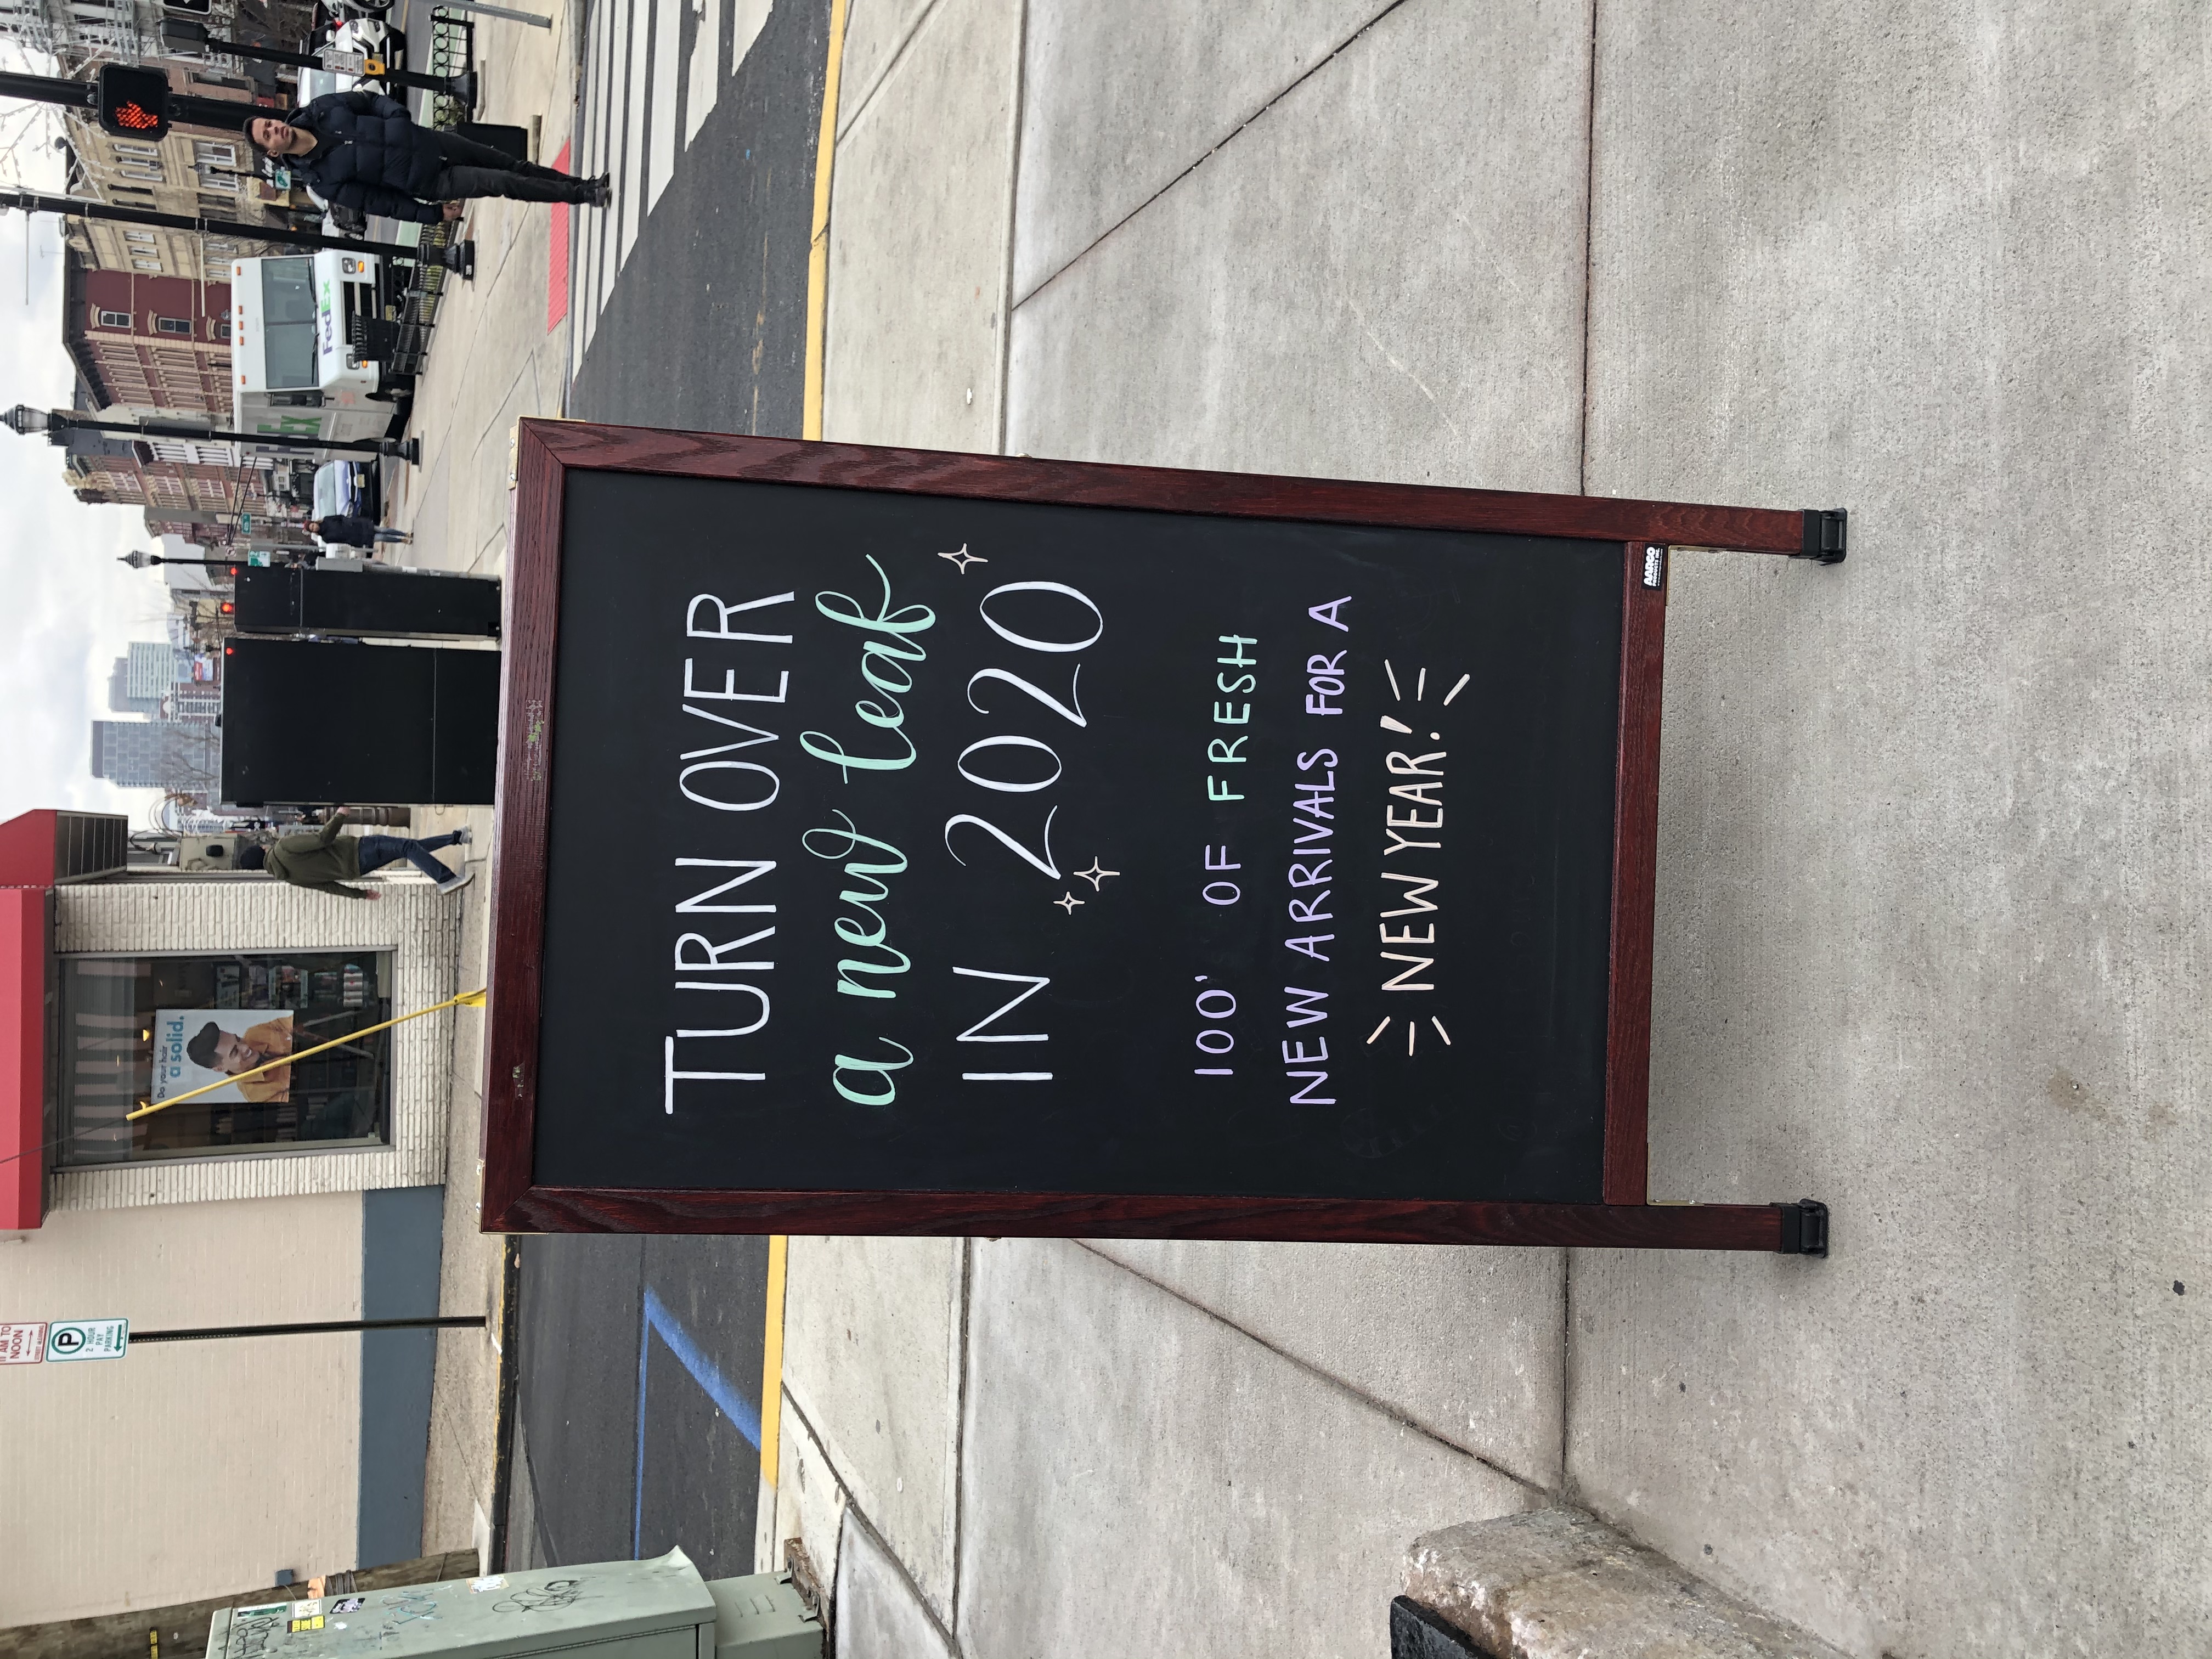 11 AM TO
NOON
STREET CLEANING
P
2 HOUR
PAY
PARKING
Do your hair
a solid.
FedEx
Ex
TURN OVER
a new leaf
IN 2020
100' OF FRESH
NEW ARRIVALS FOR A
NEW YEAR!
AARCO
PRODUCTS INC.